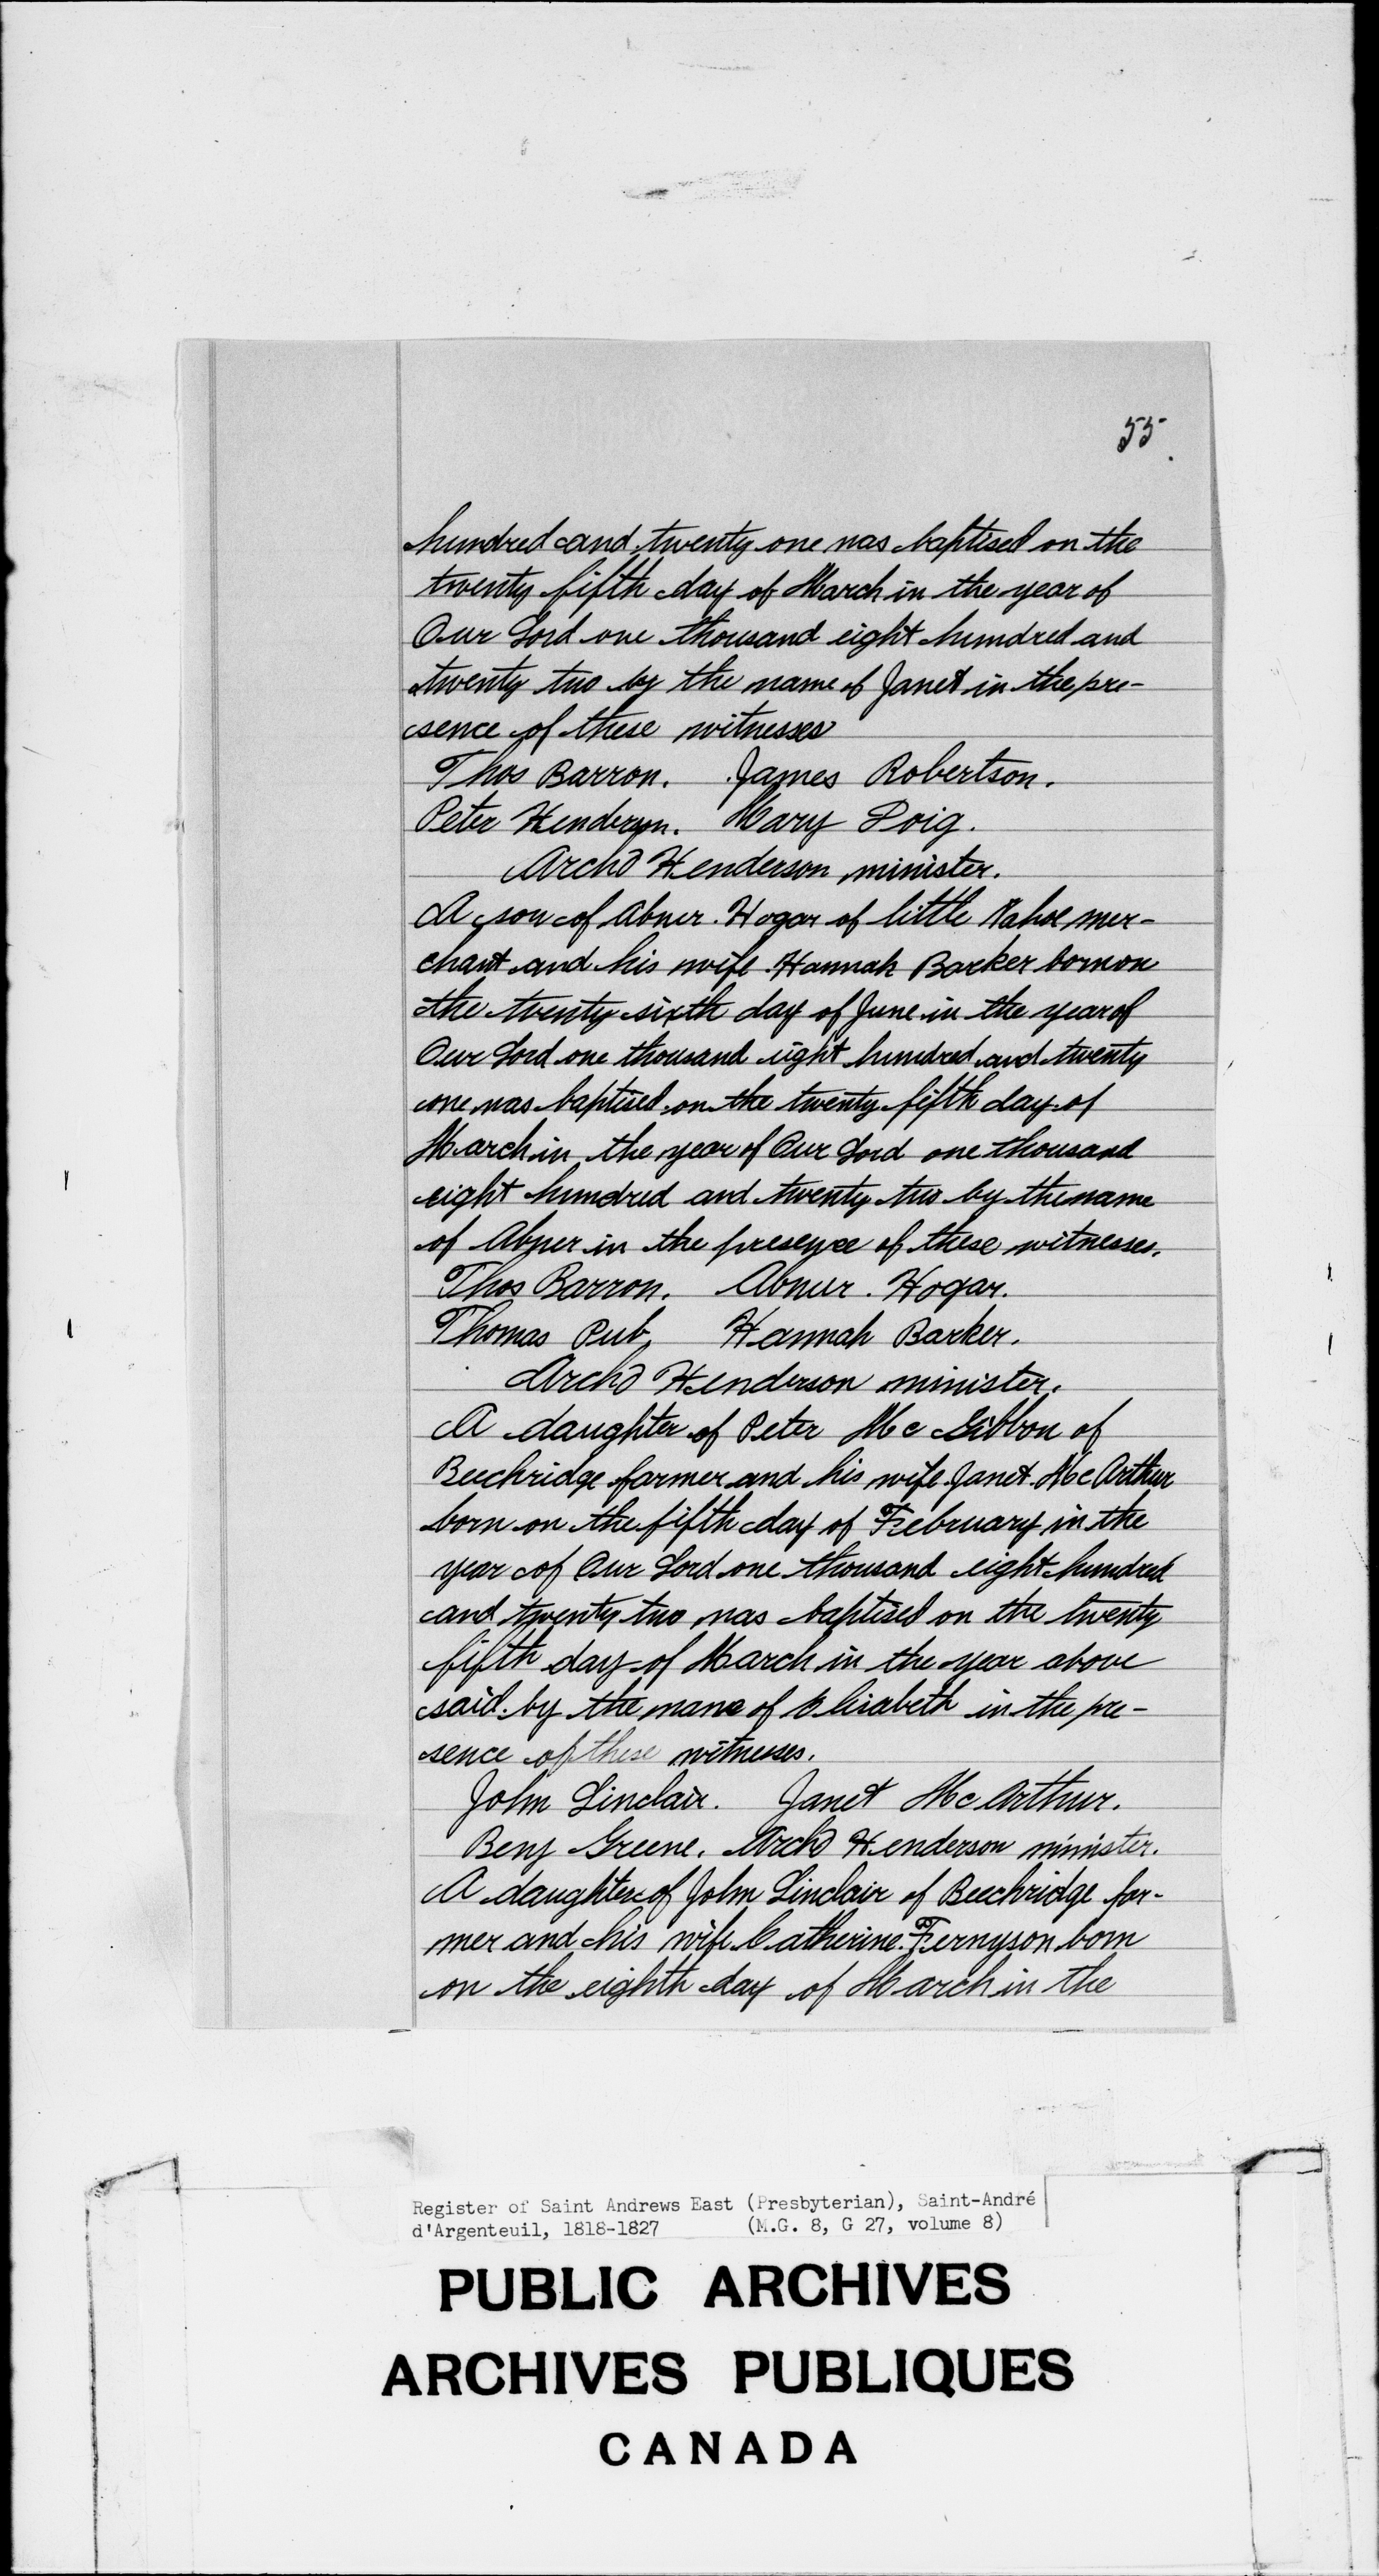 55.
hundred and twenty one was baptised on the
twenty fifth day of March in the year of
Our Lord one thousand eight hundred and
twenty two by the name of Janet in the pre-
sence of these witnesses
Thos Barron. James Robertson.
Peter Henderson. Mary Doig.
Archd Henderson minister.
A son of Abner Hogar of little mer-
chant and his wife Hannah Barker born on
the twenty sixth day of June in the year of
Our Lord one thousand eight hundred and twenty
one was baptised on the twenty fifth day of
March in the year of Our Lord one thousand
eight hundred and twenty two by the name
of Abner in the presence of these witnesses.
Thos Barron. Abner Hogar.
Thomas Hannah Barker.
Archd Henderson minister.
A daughter of Peter Mc Gibbon of
Beechridge farmer and his wife Janet Mc Arthur
born on the fifth day of February in the
year of Our Lord one thousand eight hundred
and twenty two was baptised on the twenty
fifth day of March in the year above
said by the mane of Elisabeth in the pre-
sence of these witnesses.
John Sinclair. Janet Mc Arthur.
Benj Greene. Archd Henderson minister.
A daughter of John Sinclair of Beechridge far-
mer and his wife Catherine Fernyson born
on the eighth day of March in the
Register of Saint Andrews East (Presbyterian), Saint-André
d'Argenteuil, 1818-1827 (M.G. 8, G 27, volume 8)
PUBLIC ARCHIVES
ARCHIVES PUBLIQUES
CANADA